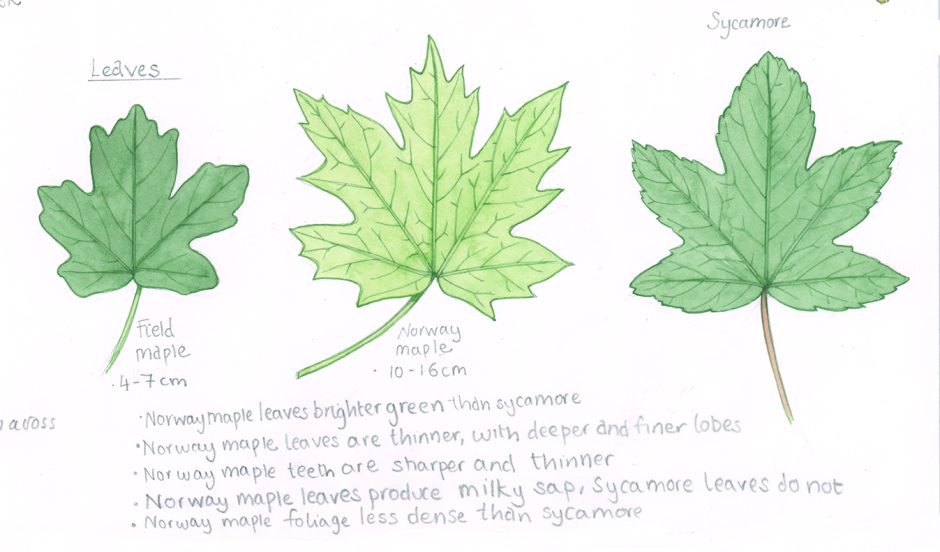 Leaves
Sycamore
Field
maple
· 4-7cm
Norway
maple
· 10-16cm
across
· Norway maple leaves brighter green than sycamore
· Norway maple leaves are thinner, with deeper and finer lobes
· Norway maple teeth are sharper and thinner
· Norway maple leaves produce milky sap, Sycamore leaves do not
· Norway maple foliage less dense than sycamore